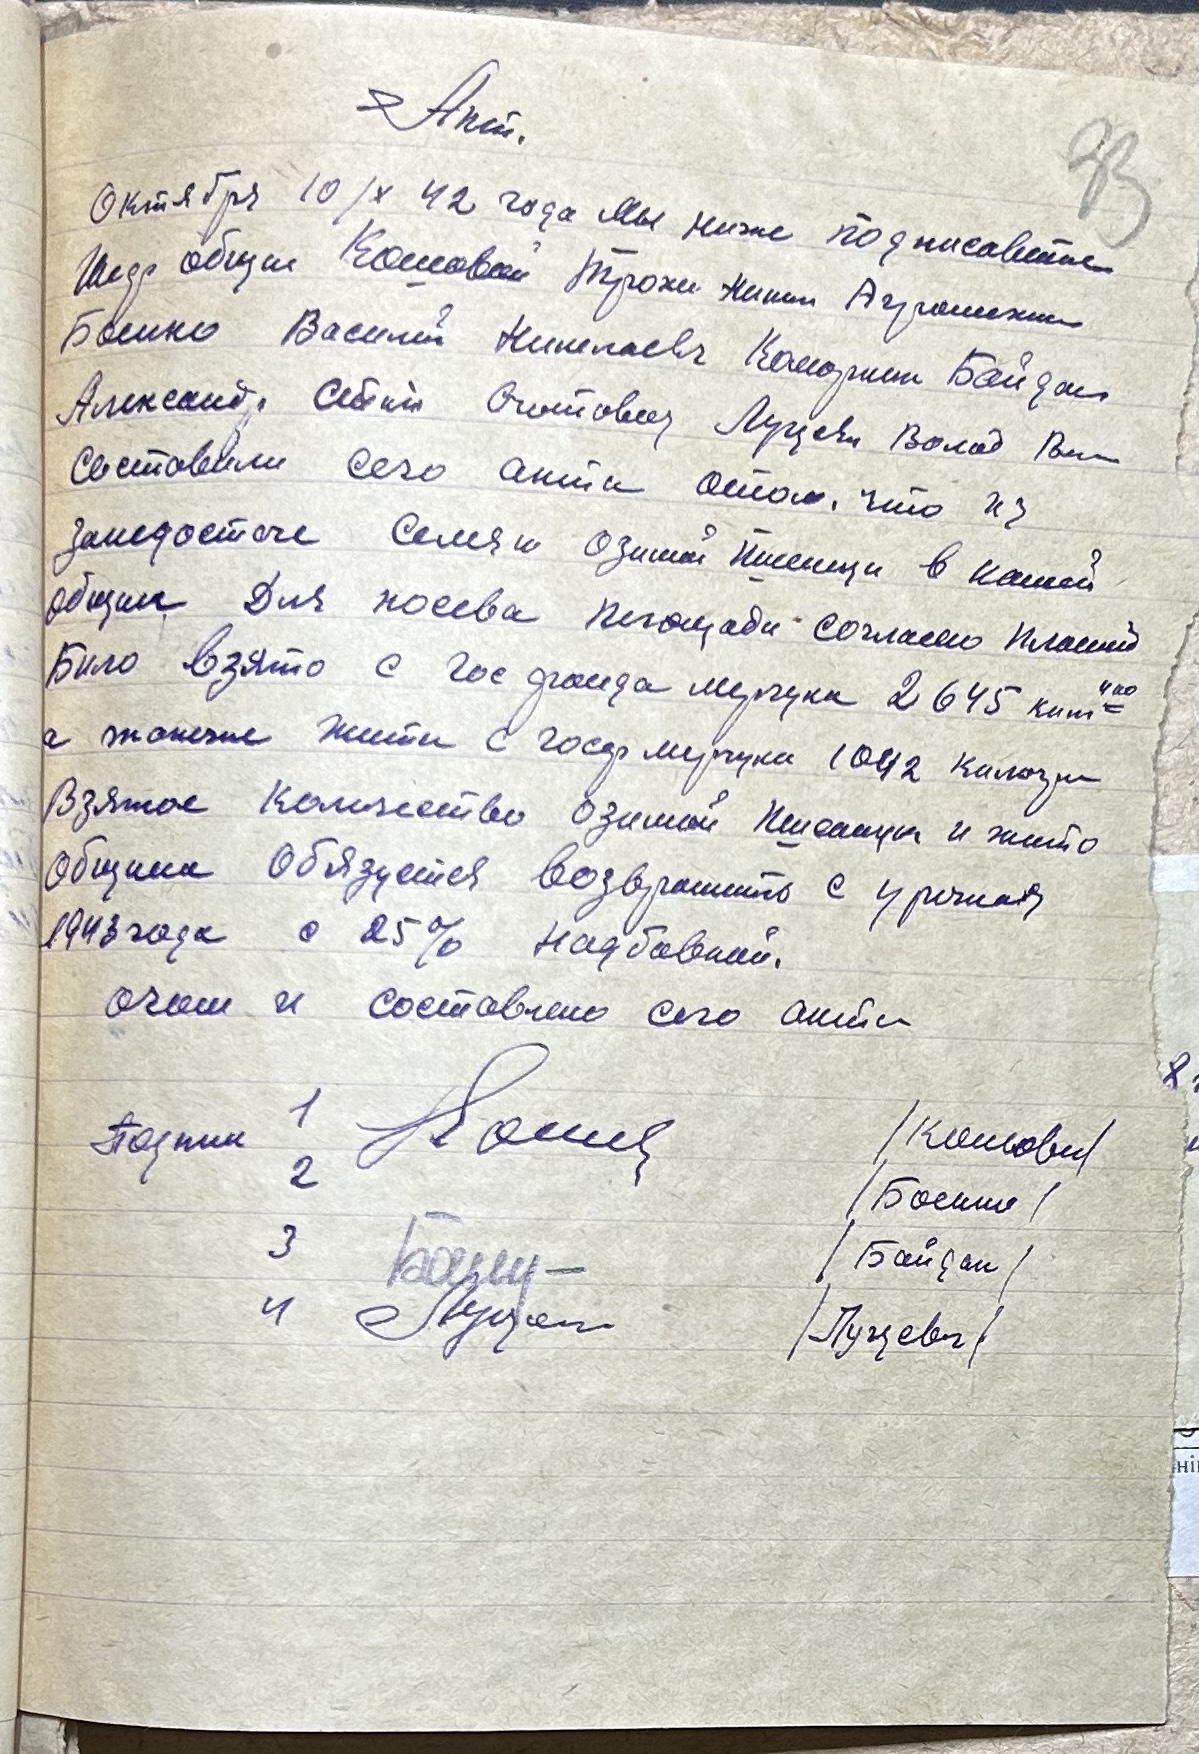 Акт.
33
Октября 10/X 42 года Мы ниже подписавшиеся
общины Кошовой Трохи Никит Агротехник
Боенко Василий Николаевч Комерник Байдак
Александ. Счотовод Лущевч Волод
Составили сего акта о том, что из
занедостаче Семян озимой Пшеницы в нашей
общине Для посева площади согласно планов
Было взято с гос фонда мерчука 2645 кил
а также жита с госф мерчука 1042 килогр
Взятое количество озимой Пшеницы и жито
Община Обязуется возвратить с урожая
1943 года с 25% Надбавкой.
очом и составлено сего акта
Подписи 1 /Кошовой/
2 /Боенко/
3 /Байдак/
4 /Лущевч/